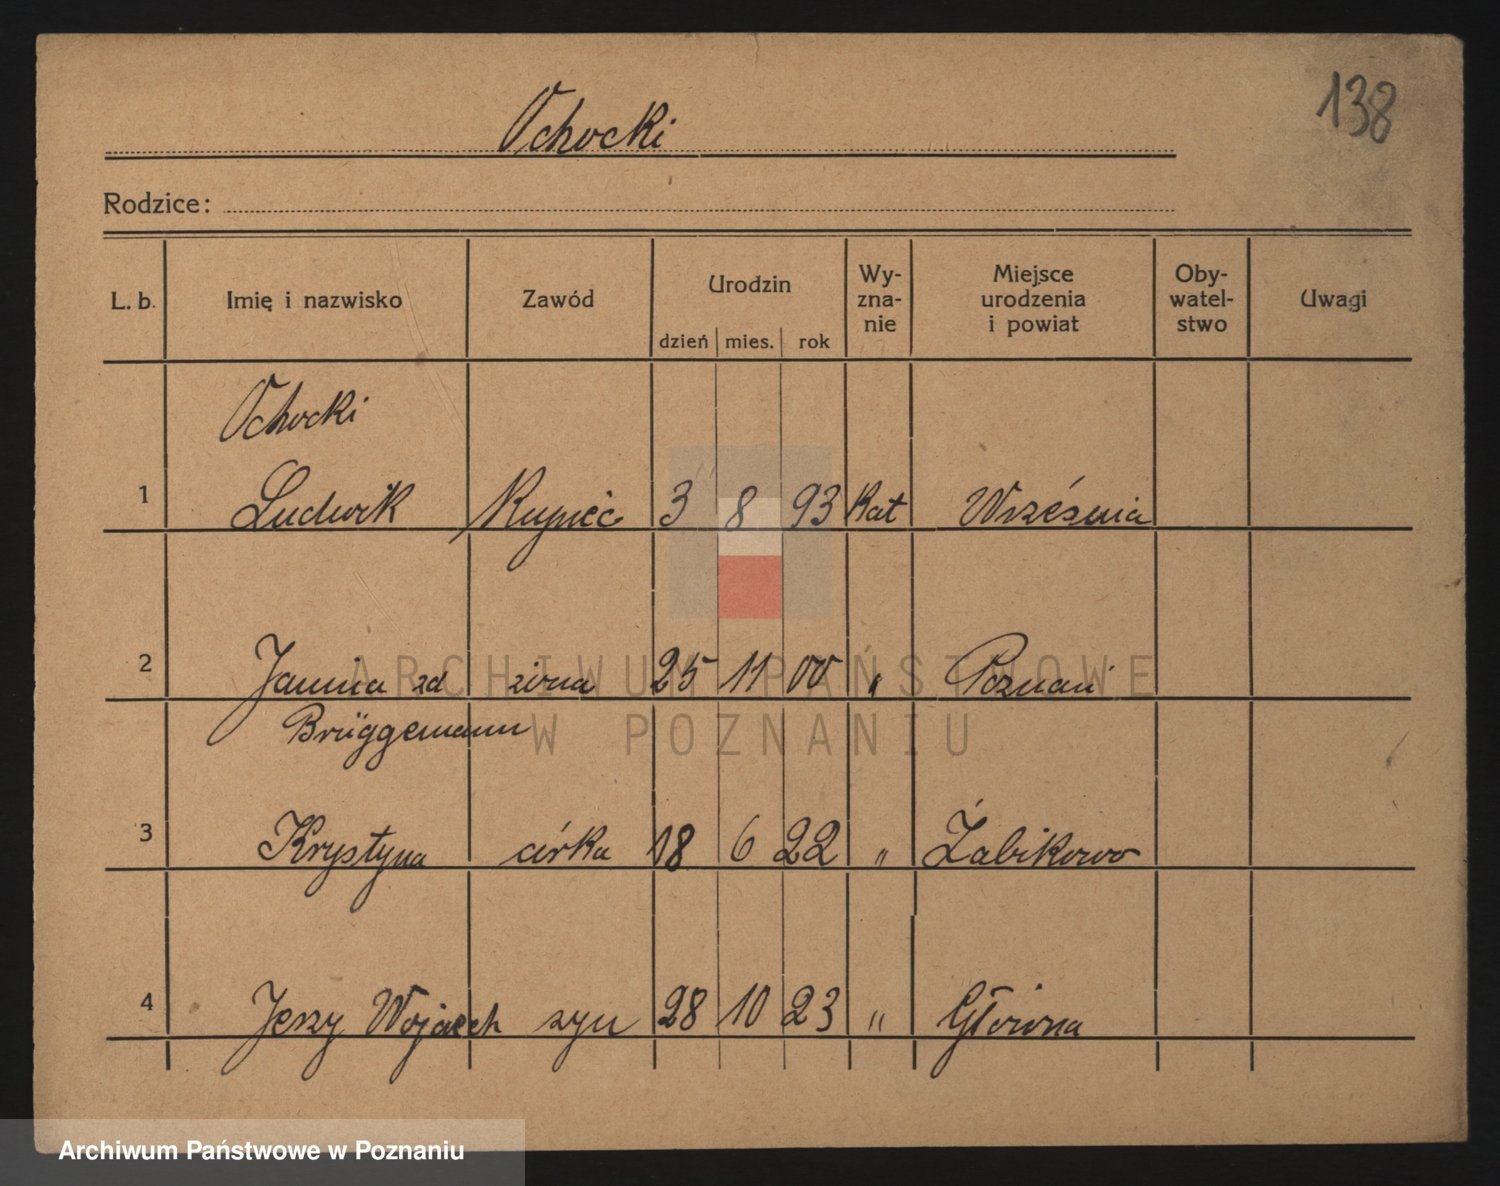 138
Ochocki
Rodzice:
L. b. Imię i nazwisko Zawód Urodzin dzień mies. rok Wy-zna-nie Miejsce urodzenia i powiat Oby-watel-stwo Uwagi
Ochocki
1 Ludwik Kupiec 3 8 93 Kat Września
2 Janina zd żona 25 11 00 " Poznań
Brüggemann
3 Krystyna córka 18 6 22 " Żabikowo
4 Jerzy Wojciech syn 28 10 23 " Główna
ARCHIWUM PAŃSTWOWE
W POZNANIU
Archiwum Państwowe w Poznaniu